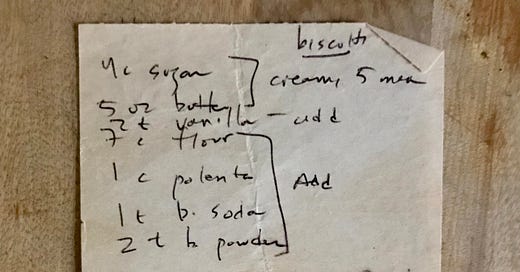 biscotti
4c sugar creamy 5 men
5 oz butter
2 t vanilla - add
7 c flour
1 c polenta Add
1 t b. soda
2 t b powder